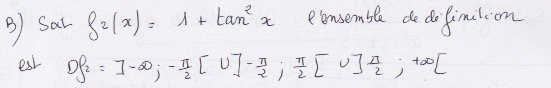 B) Soit f2(x) = 1 + tan² x l'ensemble de definition
est Df2 = ]-∞; -π/2[ U ]-π/2 ; π/2[ U ]π/2 ; +∞[